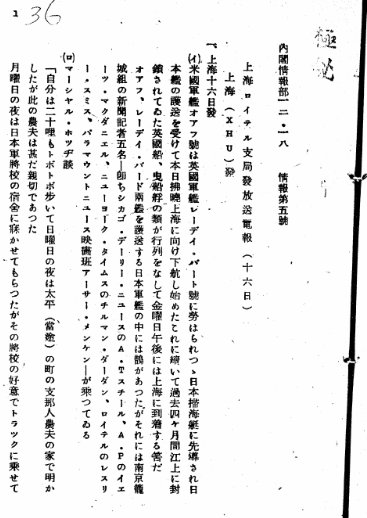 極祕
內閣情報部一二・一八 情報第五號
上海ロイテル支局發放送電報(十六日)
上海(XHU)發
一、上海十六日發
(イ)米國軍艦オアフ號は英國軍艦レーディ・バート號に勞はられつゝ日本掃海艇に先導され日
本艦の護送を受けて本日拂曉上海に向け下航し始めたこれに續いて過去四ヶ月間江上に封
鎖されてゐた英國船、曳船、艀の類が行列をなして金曜日午後には上海に到着する筈だ
オアフ、レーディ・バード兩艦を護送する日本軍艦の中には鵲があつたがそれには南京籠
城組の新聞記者五名―卽ちシカゴ・デーリー・ニュースのA・Tスチール、A・Pのイェ
ーツ・マクダニエル、ニューヨーク・タイムスのチルマン・ダーダン、ロイテルのレスリ
ー・スミス、パラマウントニュース映畫班アーサー・メンケン―が乘つてゐる
(ロ)マーシャル・ホツヂ談
「自分は二十哩もトボトボ歩いて日曜日の夜は太平(當塗)の町の支那人農夫の家で明か
したが此の農夫は甚だ親切であつた
月曜日の夜は日本軍將校の宿舍に寢かせてもらつたがその將校の好意でトラックに乘せて
36
1